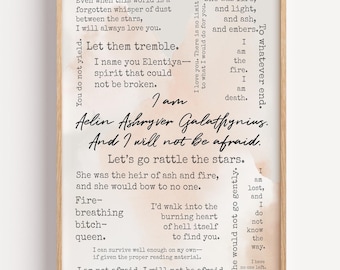 Even when this world is a
forgotten whisper of dust
between the stars,
I will always love you.
You do not yield.
Let them tremble.
I name you Elentiya—
spirit that could
not be broken.
I love you. There is no limit
to what I would do for you.
and light,
and ash,
and embers.
I
am
the
fire.
I am
death.
To whatever end.
I am
Aelin Ashryver Galathynius.
And I will not be afraid.
Let's go rattle the stars.
She was the heir of ash and fire,
and she would bow to no one.
Fire-
breathing
bitch-
queen.
I'd walk into the
burning heart
of hell itself
to find you.
I can survive well enough on my own—
if given the proper reading material.
would not go gently.
I
am
lost,
and I
do not
know the
way.